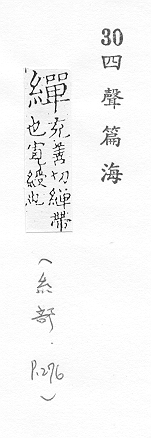 30四聲篇海
繟
充善切繟帶
也寬綬也
（糸部．P.276）